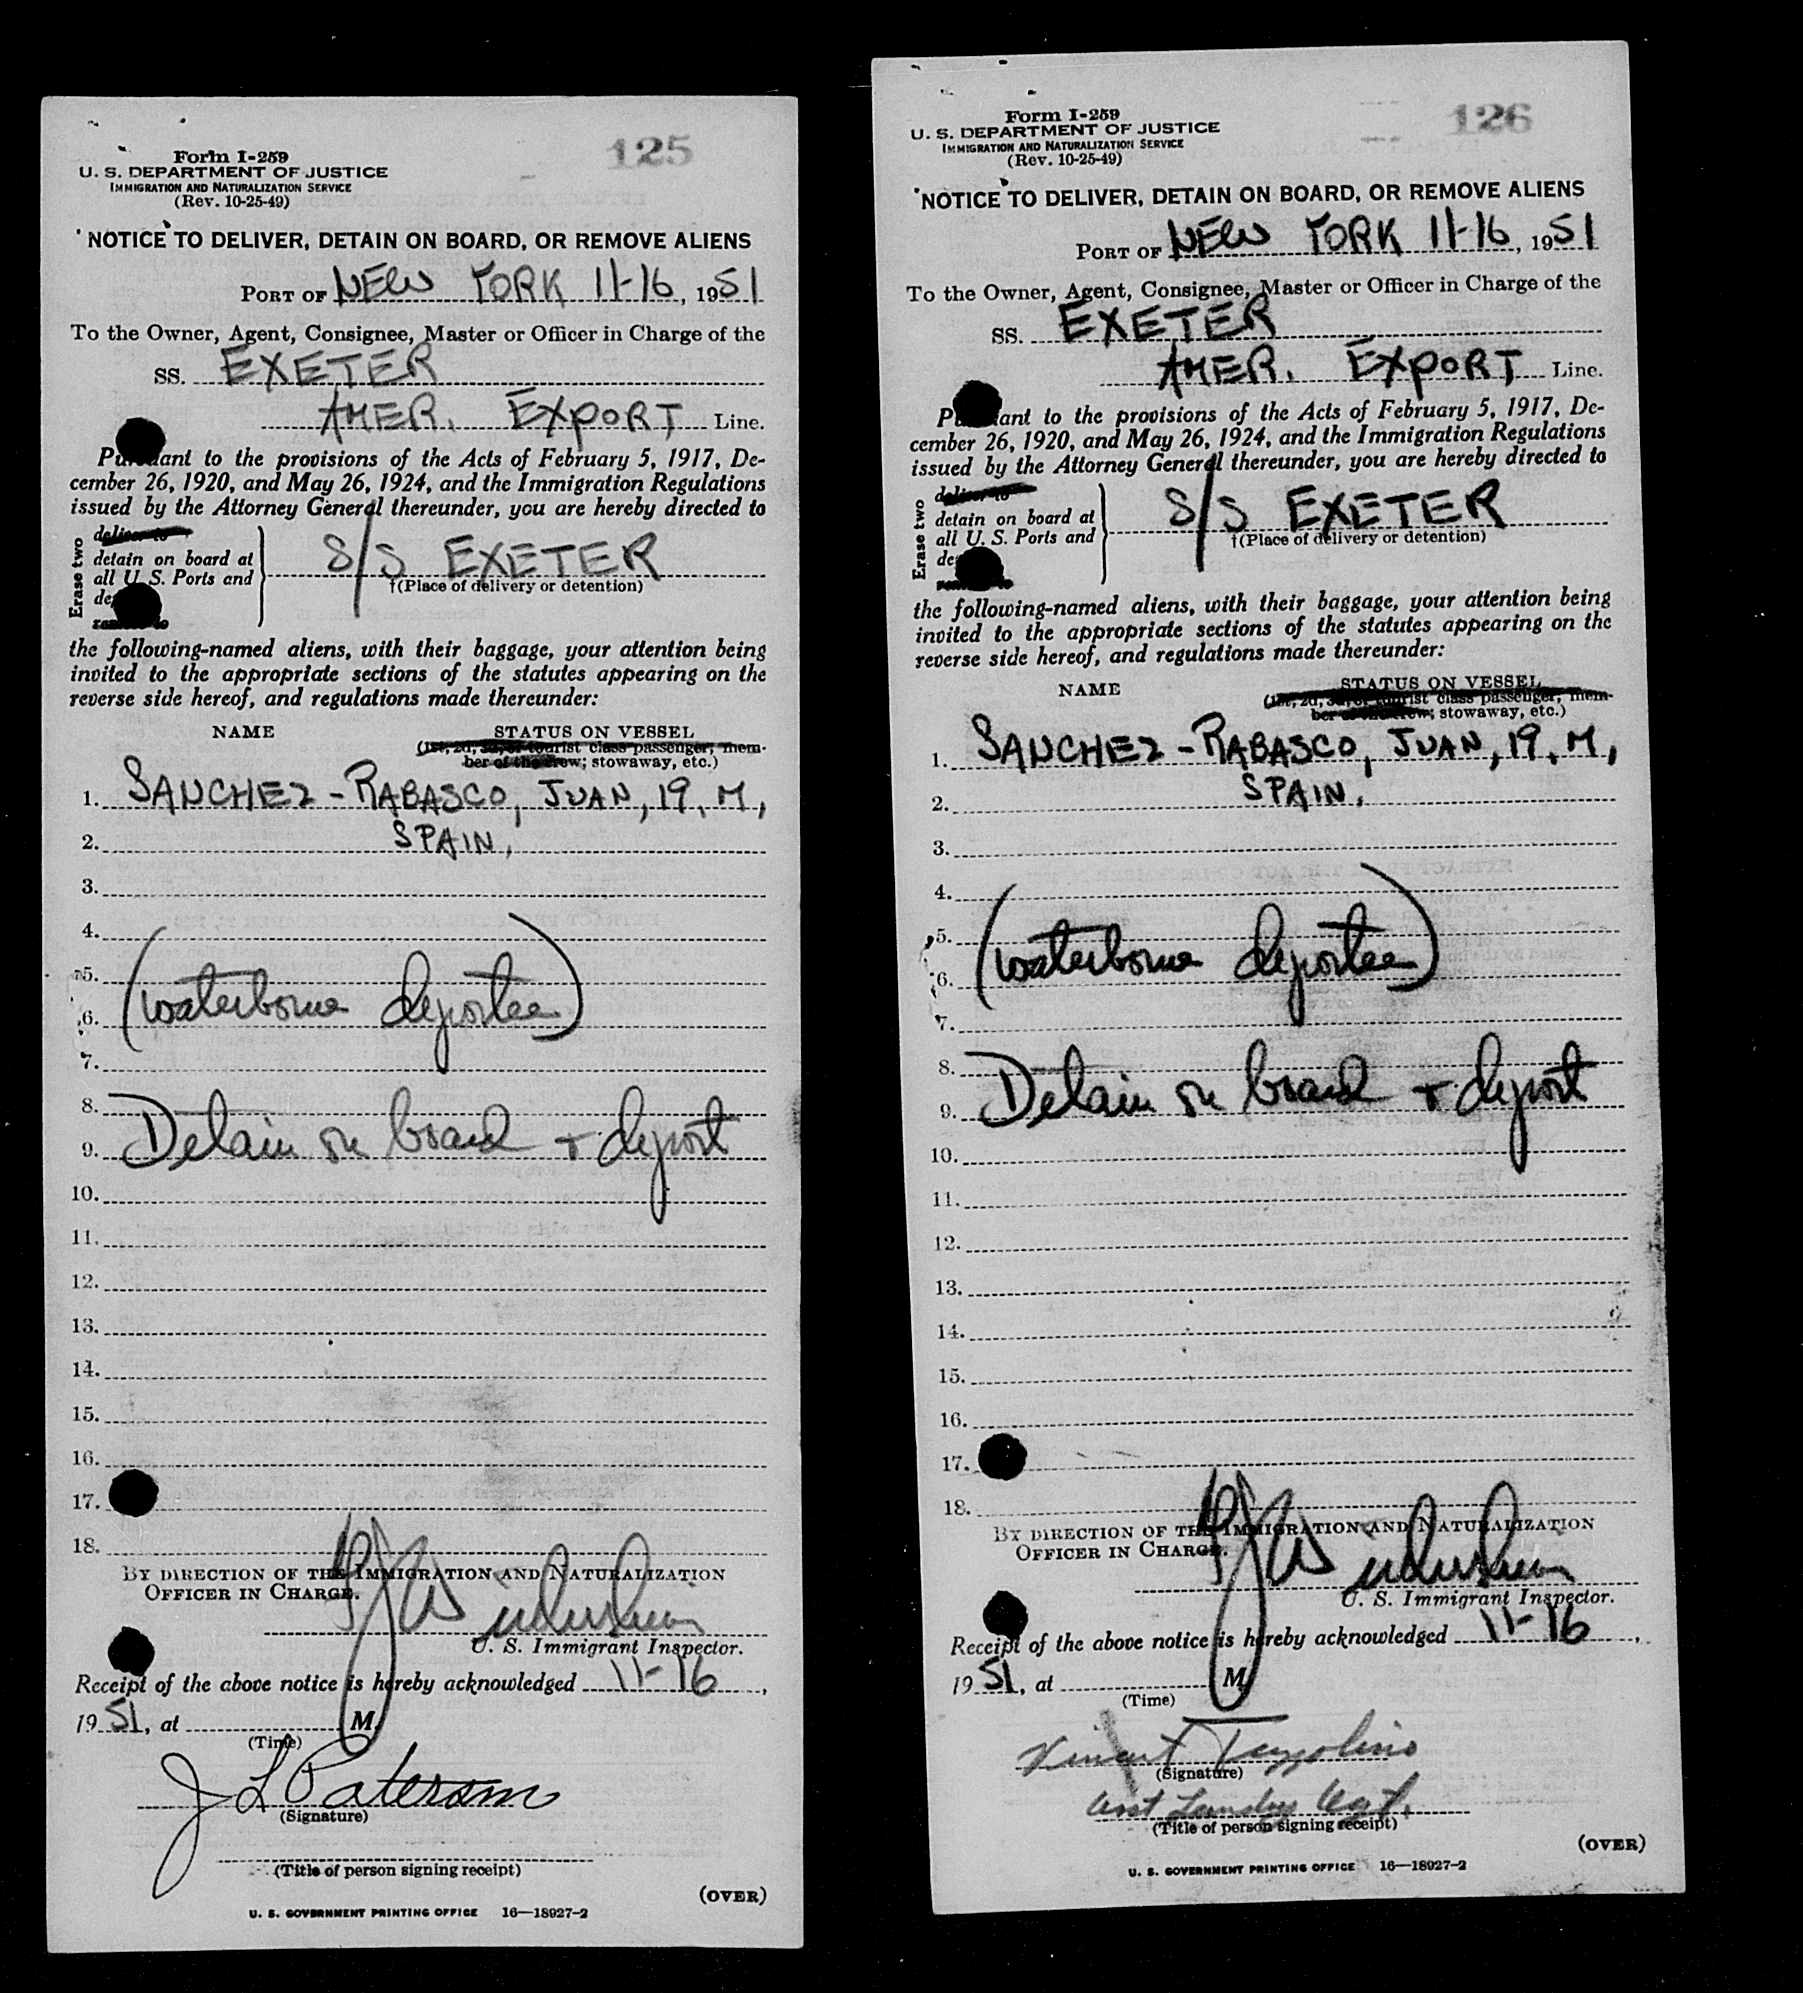 125
Form I-259
U. S. DEPARTMENT OF JUSTICE
IMMIGRATION AND NATURALIZATION SERVICE
(Rev. 10-25-49)
NOTICE TO DELIVER, DETAIN ON BOARD, OR REMOVE ALIENS
PORT OF NEW YORK 11-16, 1951
To the Owner, Agent, Consignee, Master or Officer in Charge of the
SS. EXETER
AMER. EXPORT Line.
Pursuant to the provisions of the Acts of February 5, 1917, De-
cember 26, 1920, and May 26, 1924, and the Immigration Regulations
issued by the Attorney General thereunder, you are hereby directed to
Erase two
deliver to
detain on board at
all U. S. Ports and
S/S EXETER
†(Place of delivery or detention)
remove to
the following-named aliens, with their baggage, your attention being
invited to the appropriate sections of the statutes appearing on the
reverse side hereof, and regulations made thereunder:
NAME
STATUS ON VESSEL
(1st, 2d, 3d, or tourist class passenger, mem-
ber of the crew; stowaway, etc.)
1. SANCHEZ - RABASCO, JUAN, 19, M,
2. SPAIN,
3.
4.
5.
6. (waterborne deportee)
7.
8.
9. Detain on board + deport
10.
11.
12.
13.
14.
15.
16.
17.
18.
BY DIRECTION OF THE IMMIGRATION AND NATURALIZATION
OFFICER IN CHARGE.
U. S. Immigrant Inspector.
Receipt of the above notice is hereby acknowledged 11-16,
1951, at M.
(Time)
J L Paterson
(Signature)
(Title of person signing receipt)
(OVER)
U. S. GOVERNMENT PRINTING OFFICE 16—18927-2
126
Form I-259
U. S. DEPARTMENT OF JUSTICE
IMMIGRATION AND NATURALIZATION SERVICE
(Rev. 10-25-49)
NOTICE TO DELIVER, DETAIN ON BOARD, OR REMOVE ALIENS
PORT OF NEW YORK 11-16, 1951
To the Owner, Agent, Consignee, Master or Officer in Charge of the
SS. EXETER
AMER. EXPORT Line.
Pursuant to the provisions of the Acts of February 5, 1917, De-
cember 26, 1920, and May 26, 1924, and the Immigration Regulations
issued by the Attorney General thereunder, you are hereby directed to
Erase two
deliver to
detain on board at
all U. S. Ports and
S/S EXETER
†(Place of delivery or detention)
remove to
the following-named aliens, with their baggage, your attention being
invited to the appropriate sections of the statutes appearing on the
reverse side hereof, and regulations made thereunder:
NAME
STATUS ON VESSEL
(1st, 2d, 3d, or tourist class passenger, mem-
ber of the crew; stowaway, etc.)
1. SANCHEZ - RABASCO, JUAN, 19, M,
2. SPAIN,
3.
4.
5.
6. (waterborne deportee)
7.
8.
9. Detain on board + deport
10.
11.
12.
13.
14.
15.
16.
17.
18.
BY DIRECTION OF THE IMMIGRATION AND NATURALIZATION
OFFICER IN CHARGE.
U. S. Immigrant Inspector.
Receipt of the above notice is hereby acknowledged 11-16,
1951, at M.
(Time)
Vincent Tezzolino
(Signature)
(Title of person signing receipt)
(OVER)
U. S. GOVERNMENT PRINTING OFFICE 16—18927-2